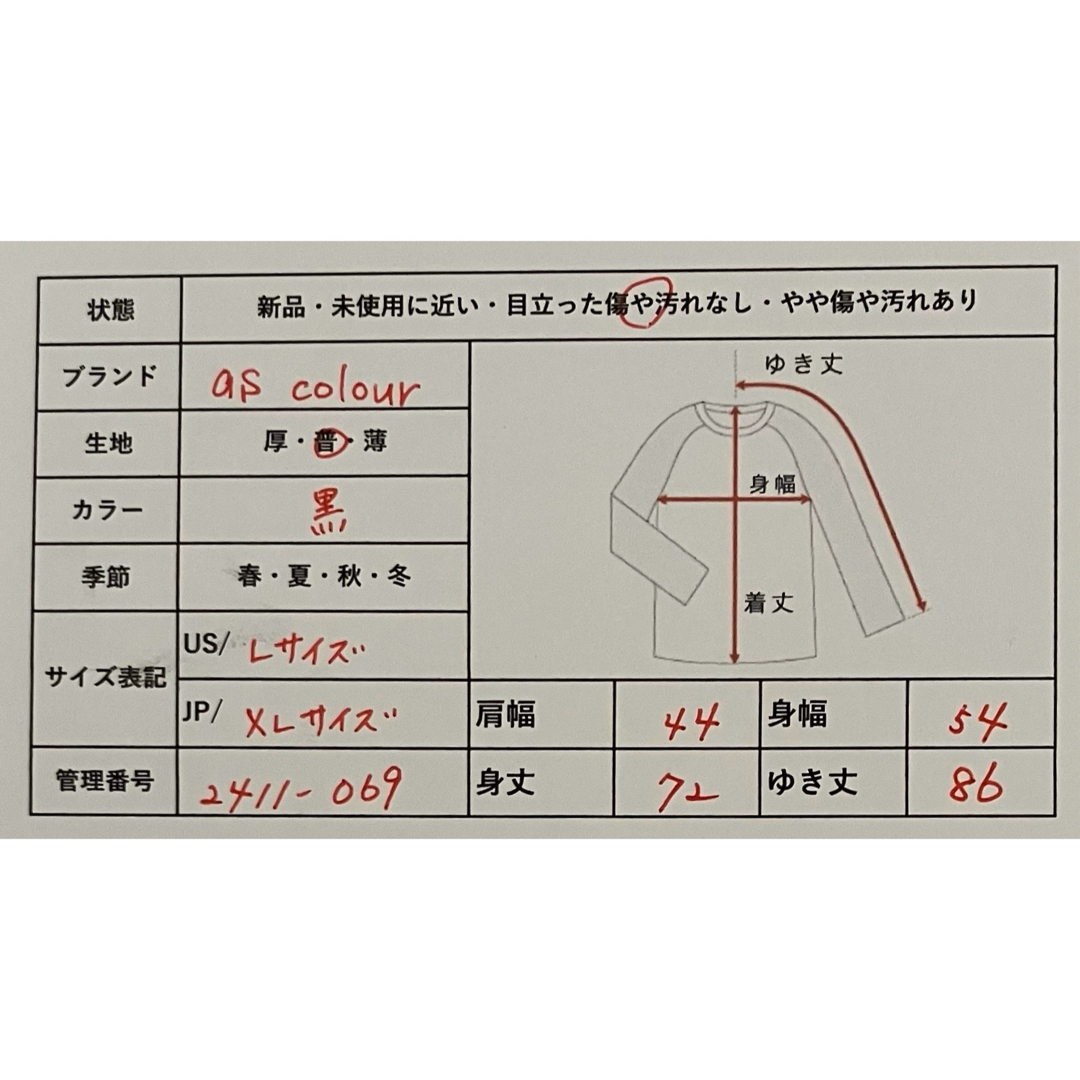 状態 新品・未使用に近い・目立った傷や汚れなし・やや傷や汚れあり
ブランド as colour
生地 厚・普・薄
カラー 黒
季節 春・夏・秋・冬
サイズ表記 US/ Lサイズ
JP/ XLサイズ
管理番号 2411-069
ゆき丈
身幅
着丈
肩幅 44 身幅 54
身丈 72 ゆき丈 86